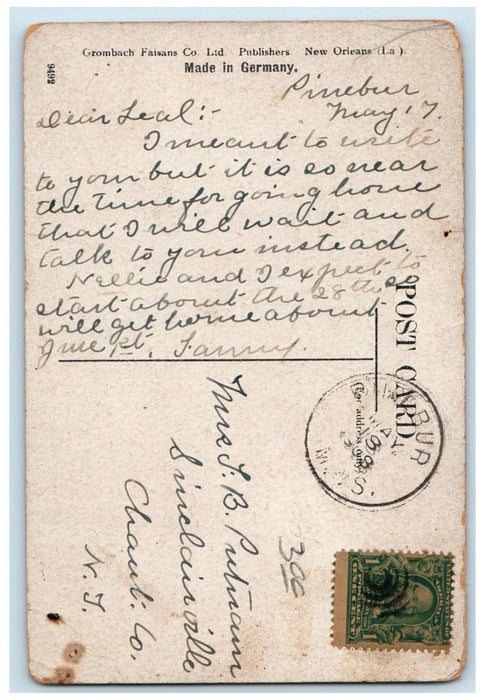 Grombach Faisans Co. Ltd. Publishers. New Orleans (La).
Made in Germany.
9492
Pinebur
May 17
Dear Leal:-
I meant to write
to you but it is so near
the time for going home
that I will wait and
talk to you instead.
Nellie and I expect to
start about the 28th so
will get home about
June 1st, Fanny.
POST CARD
PINEBUR
MAY
18
1908
MISS.
Mrs. S. B. Putnam
Sinclairville
Chaut. Co.
N. Y.
300
1
1